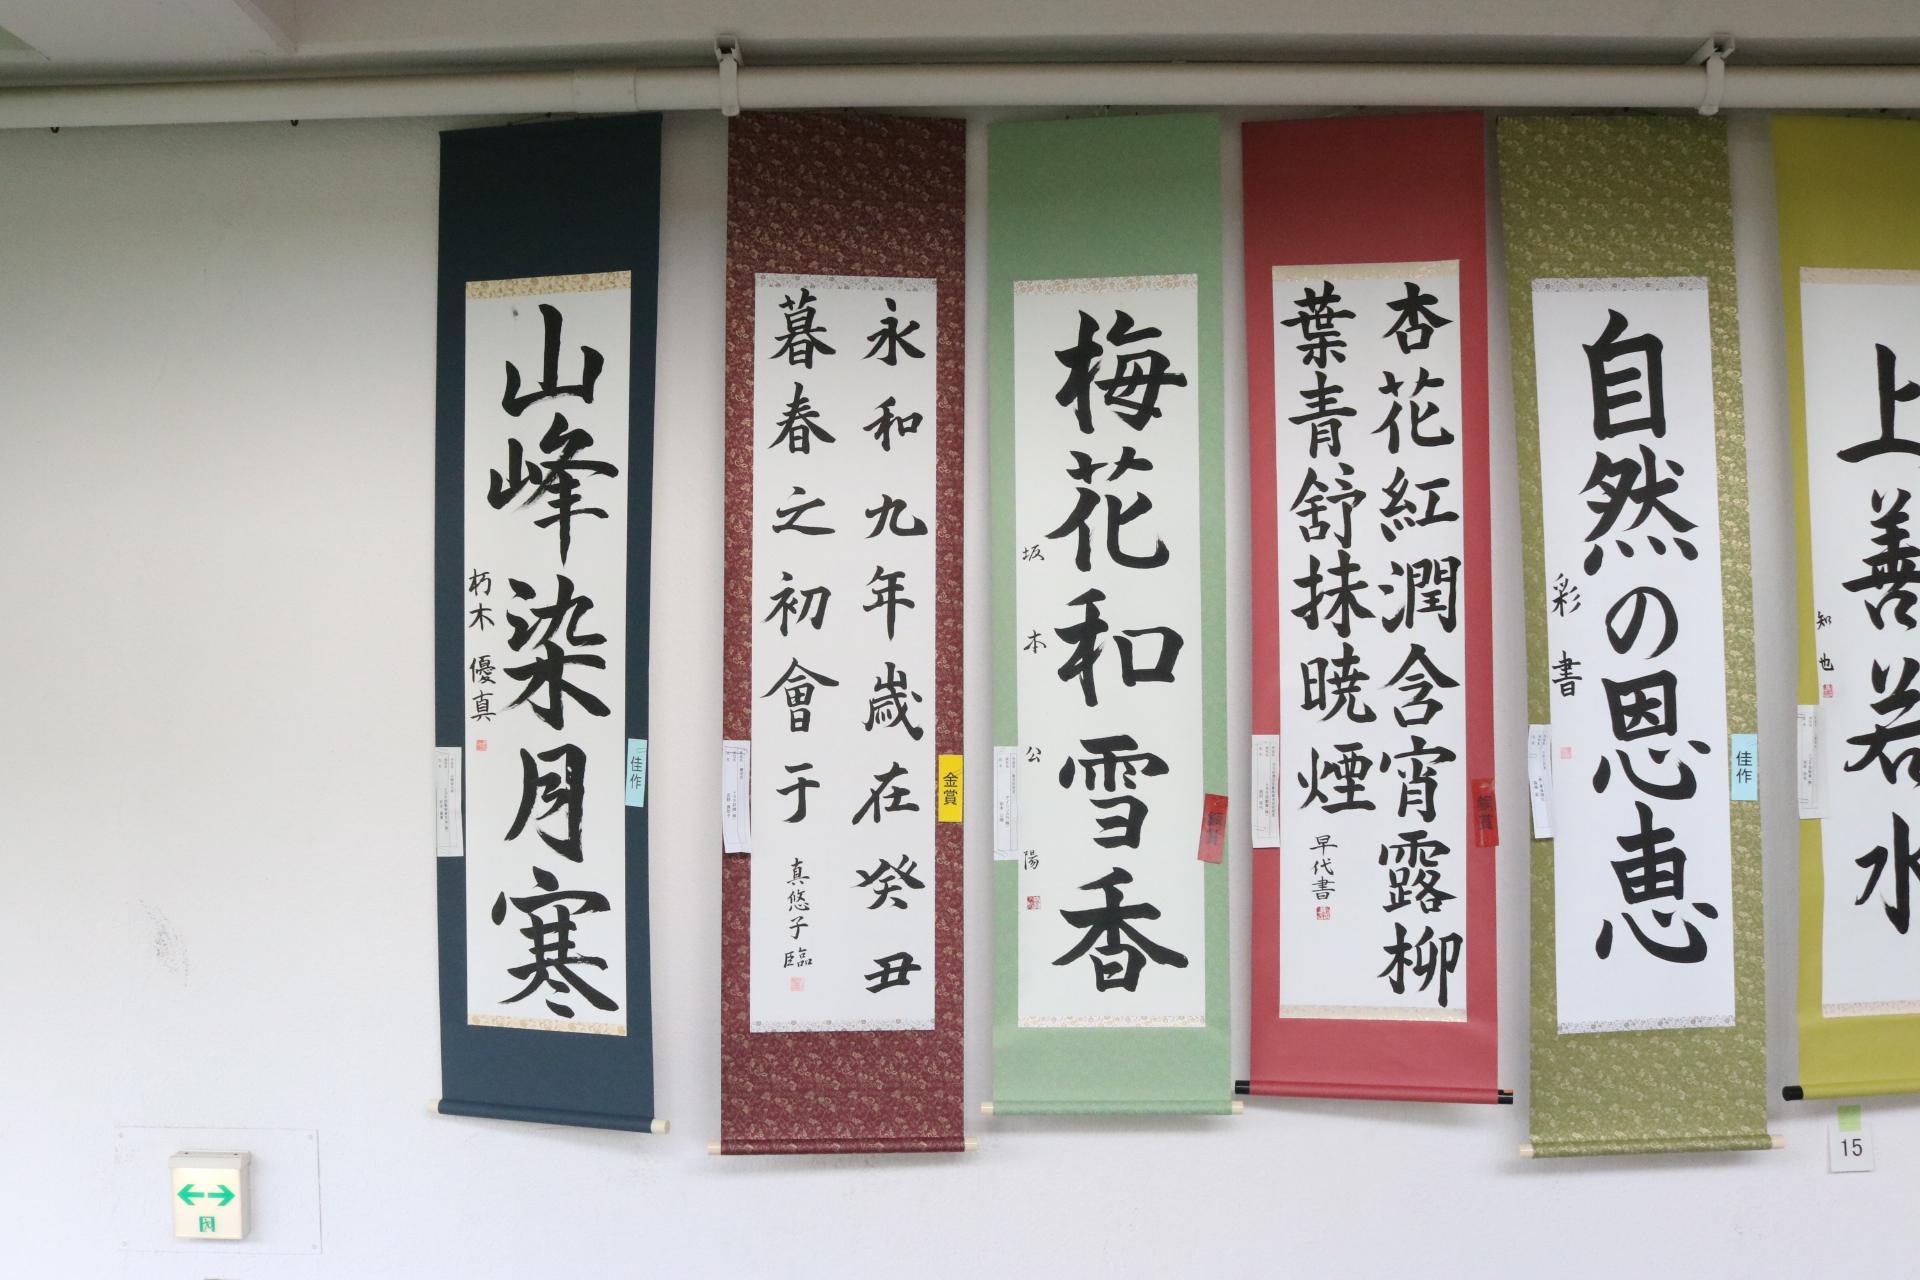 山峰染月寒
朽木 優真
佳作
永和九年歳在癸丑
暮春之初會于
真悠子臨
金賞
梅花和雪香
坂本公陽
銀賞
杏花紅潤含宵露柳
葉青舒抹暁煙
早代書
銀賞
自然の恩恵
彩書
佳作
上善若水
知也
15